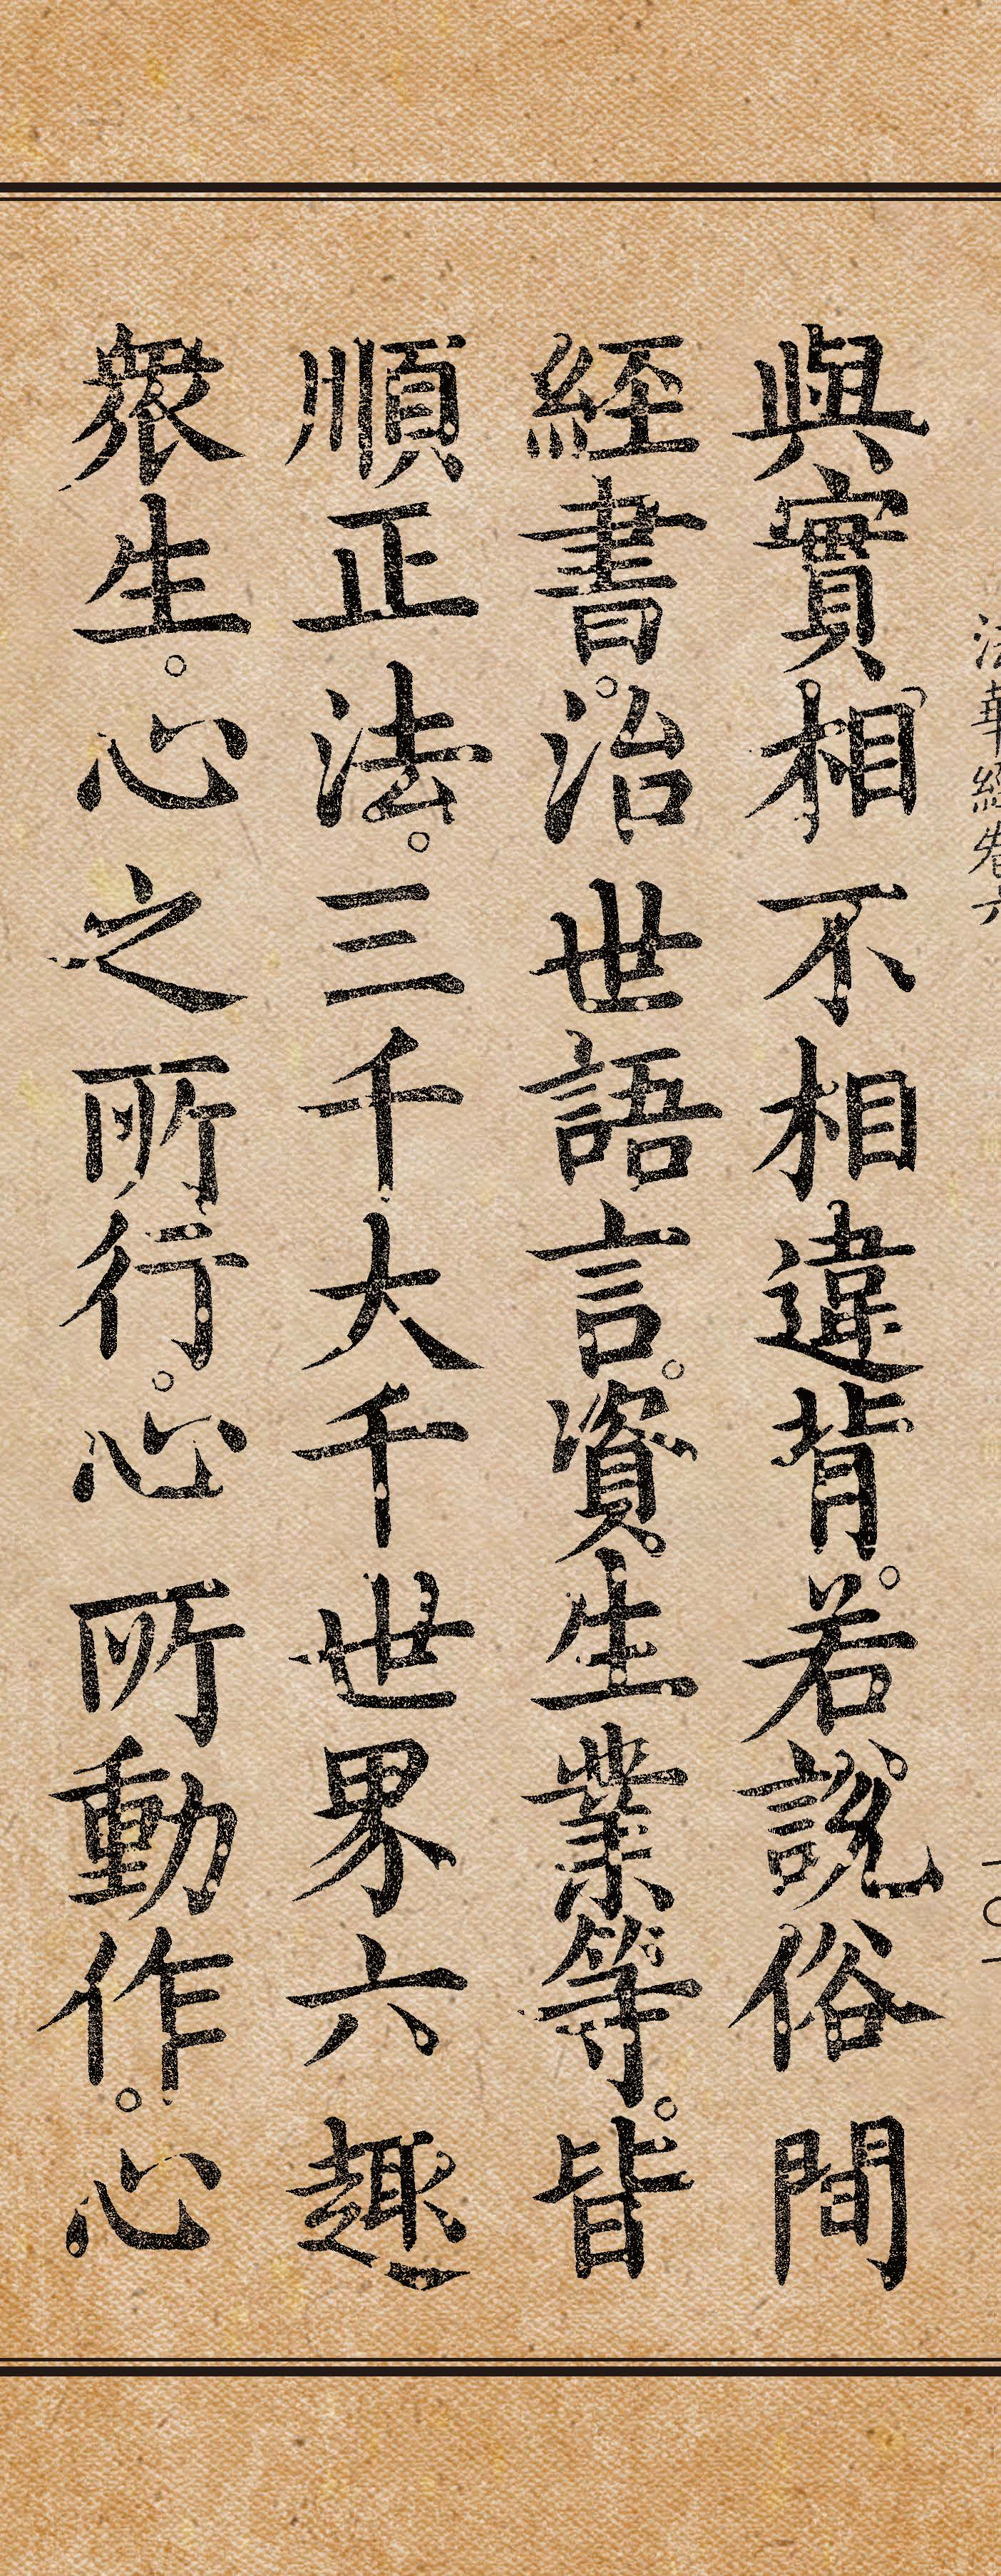 法華經卷六
一〇一
與實相不相違背。若說俗間
經書。治世語言。資生業等。皆
順正法。三千大千世界六趣
衆生。心之所行。心所動作。心